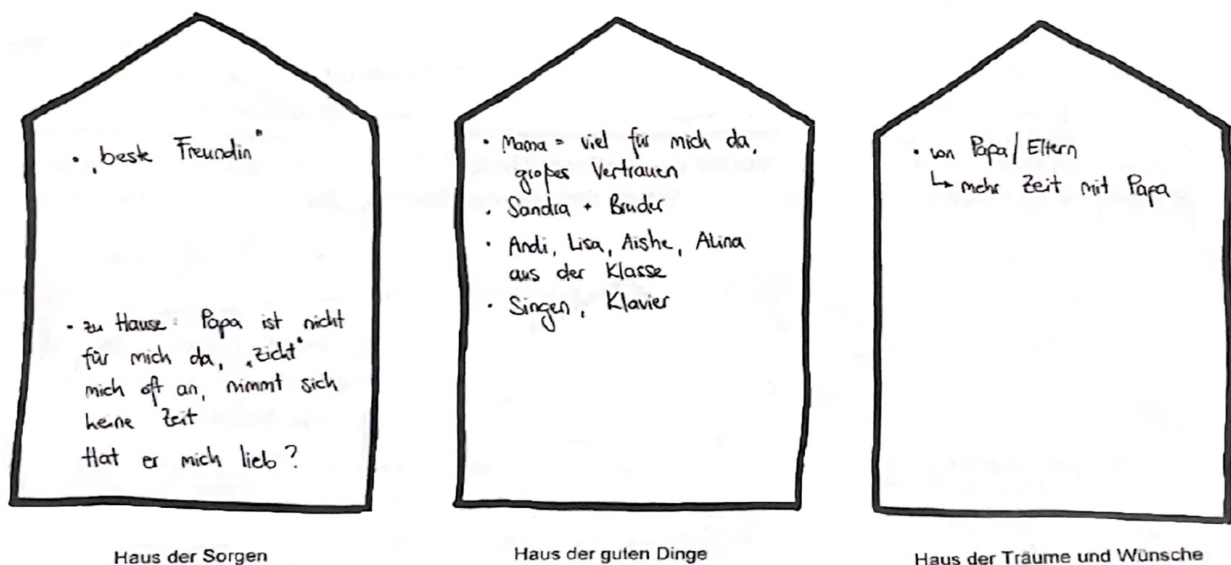 • „beste Freundin"
• zu Hause: Papa ist nicht
für mich da, „zickt"
mich oft an, nimmt sich
keine Zeit
Hat er mich lieb?
Haus der Sorgen
• Mama = viel für mich da,
großes Vertrauen
• Sandra + Bruder
• Andi, Lisa, Aishe, Alina
aus der Klasse
• Singen, Klavier
Haus der guten Dinge
• von Papa/Eltern
↳ mehr Zeit mit Papa
Haus der Träume und Wünsche